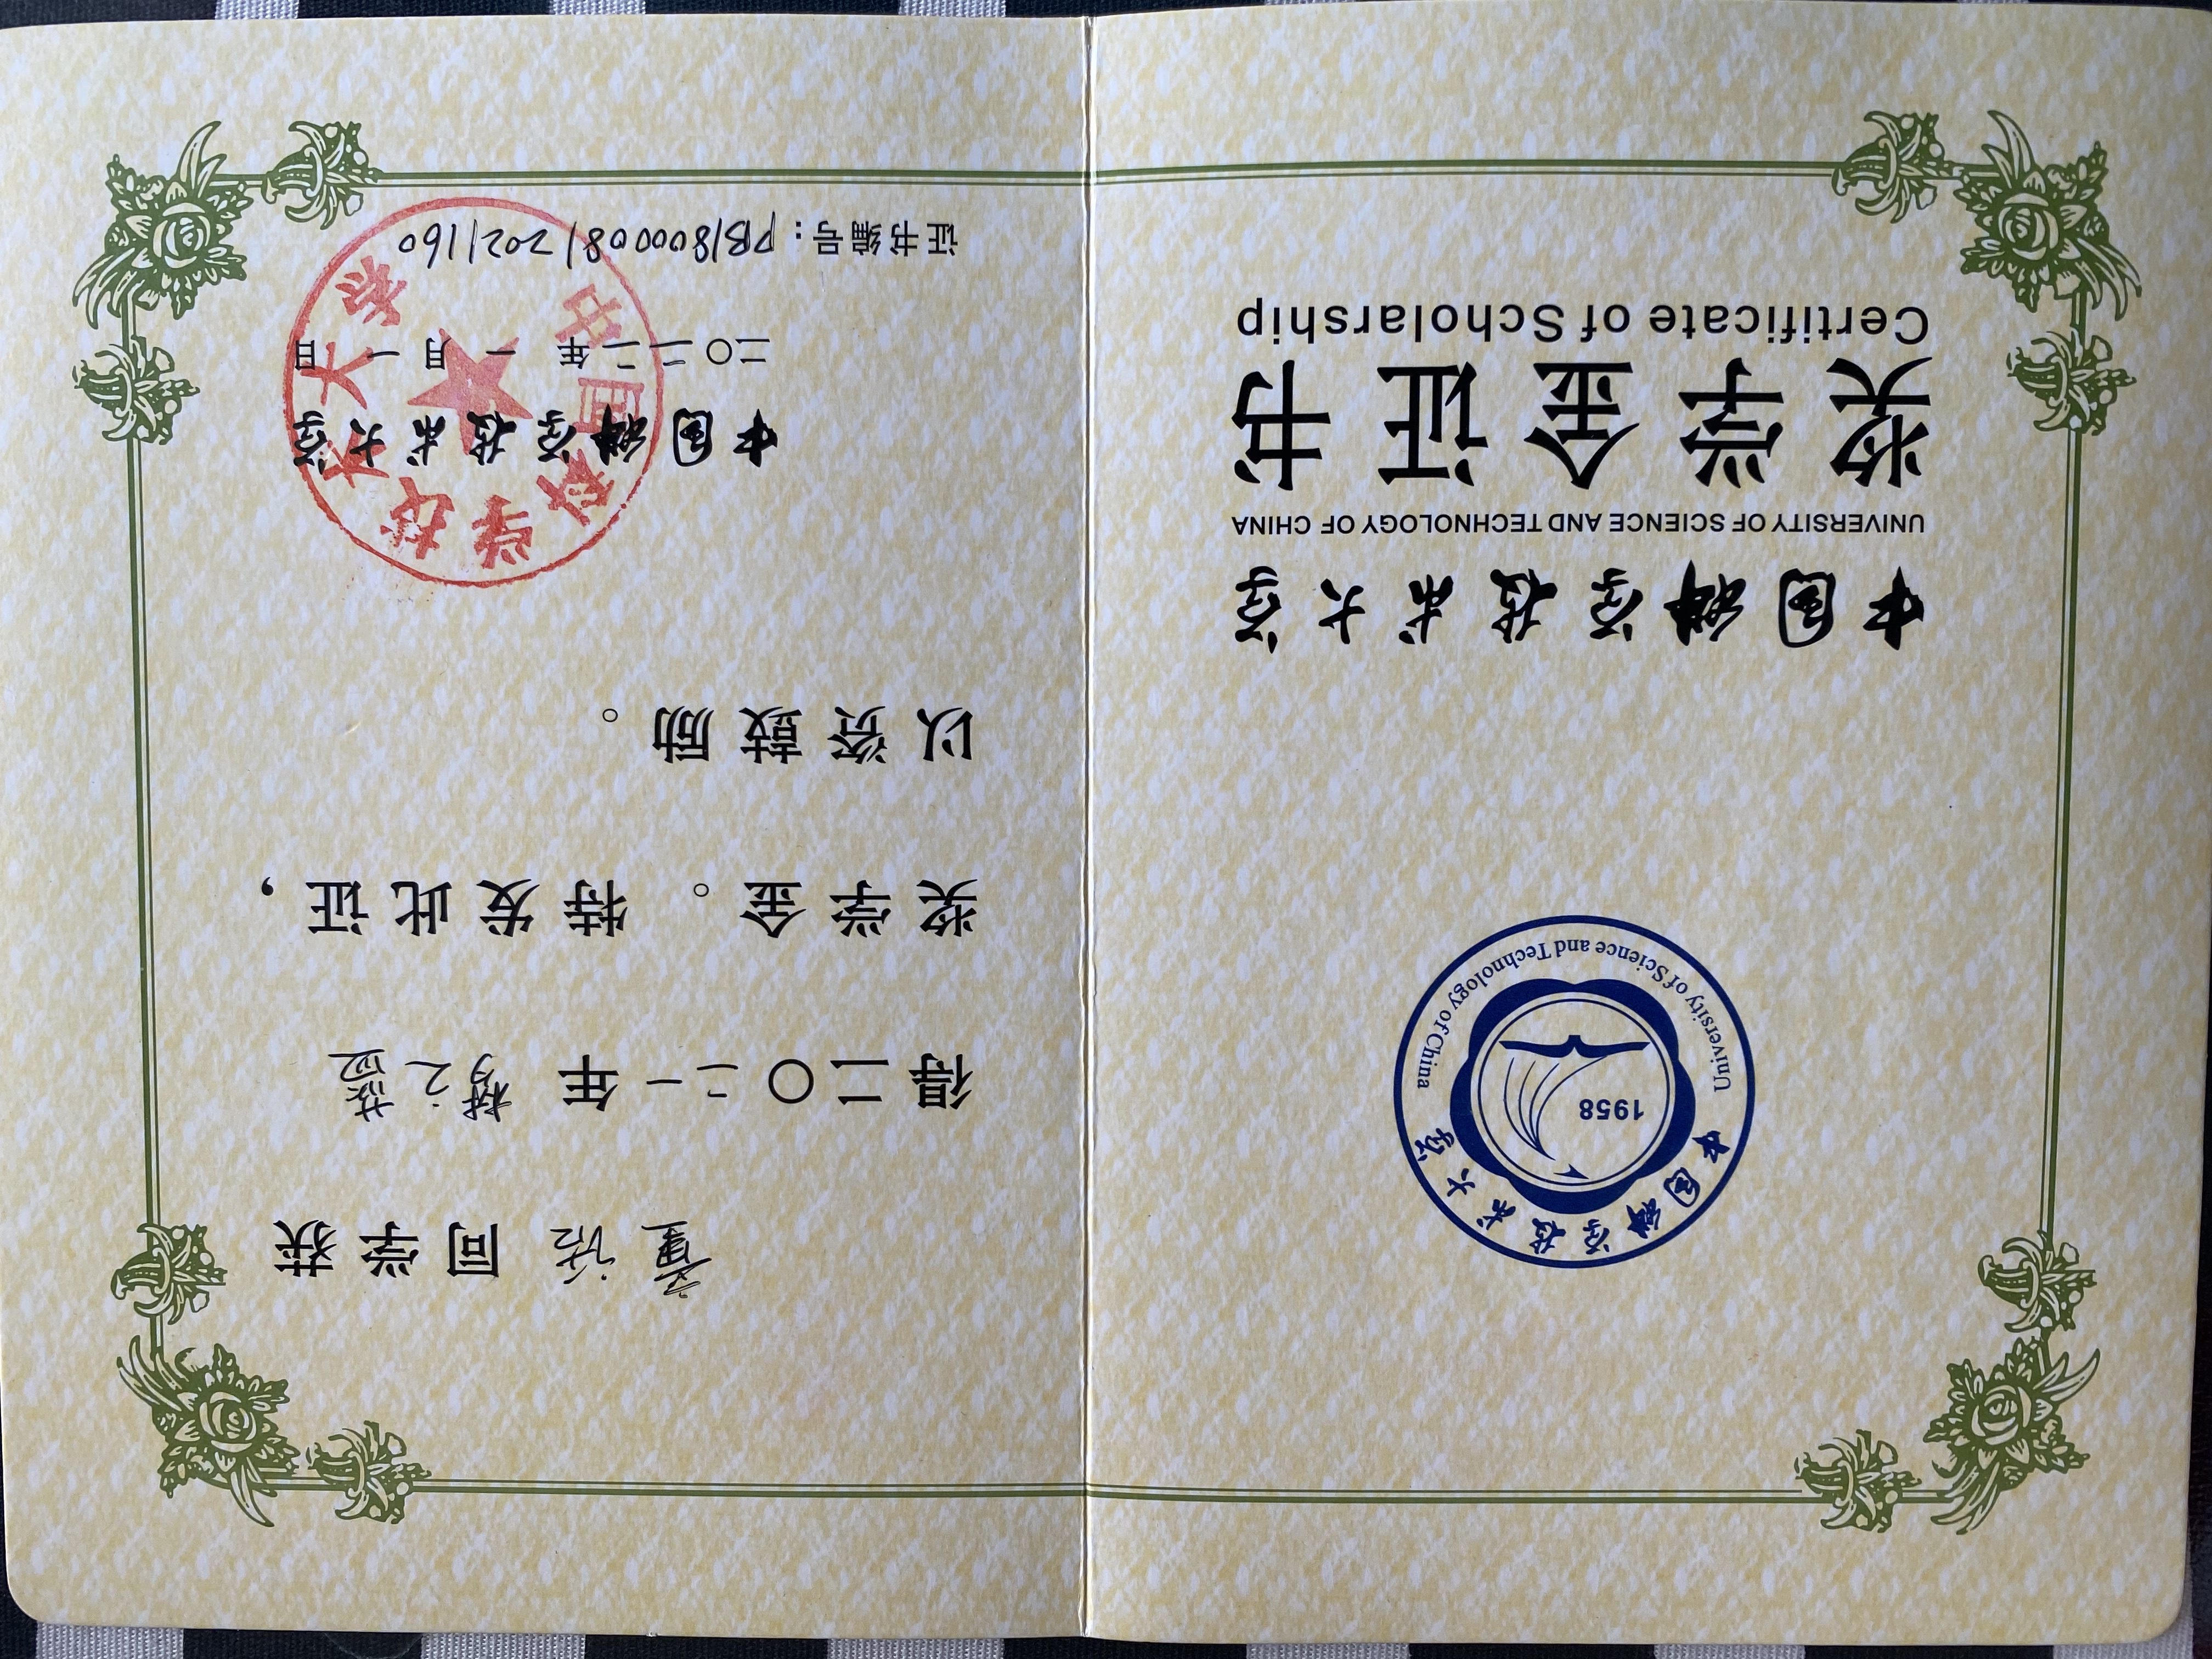 中国科学技术大学
1958
University of Science and Technology of China
中国科学技术大学
UNIVERSITY OF SCIENCE AND TECHNOLOGY OF CHINA
奖学金证书
Certificate of Scholarship
童话同学获
得二〇二一年梦之蓝
奖学金。特发此证，
以资鼓励。
中国科学技术大学
中国科学技术大学
二〇二二年一月一日
证书编号：PB180000812021160